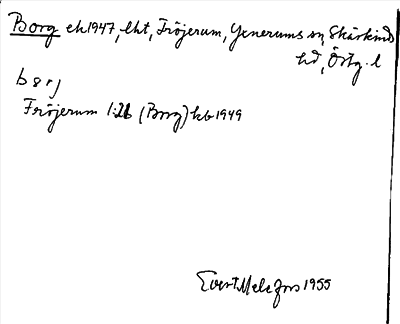 Borg ek 1947, lht, Fröjerum, Yxnerums sn, Skärkinds
hd, Östg. l
Fröjerum 1:26 (Borg) kb 1949
Evert Melefors 1955